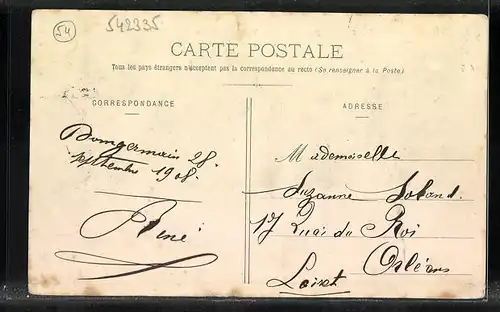 54
542335
CARTE POSTALE
Tous les pays étrangers n'acceptent pas la correspondance au recto (Se renseigner à la Poste)
CORRESPONDANCE
ADRESSE
Domgermain 28
septembre 1908.
René
Mademoiselle
Suzanne
17 Quai du Roi
Orléans
Loiret